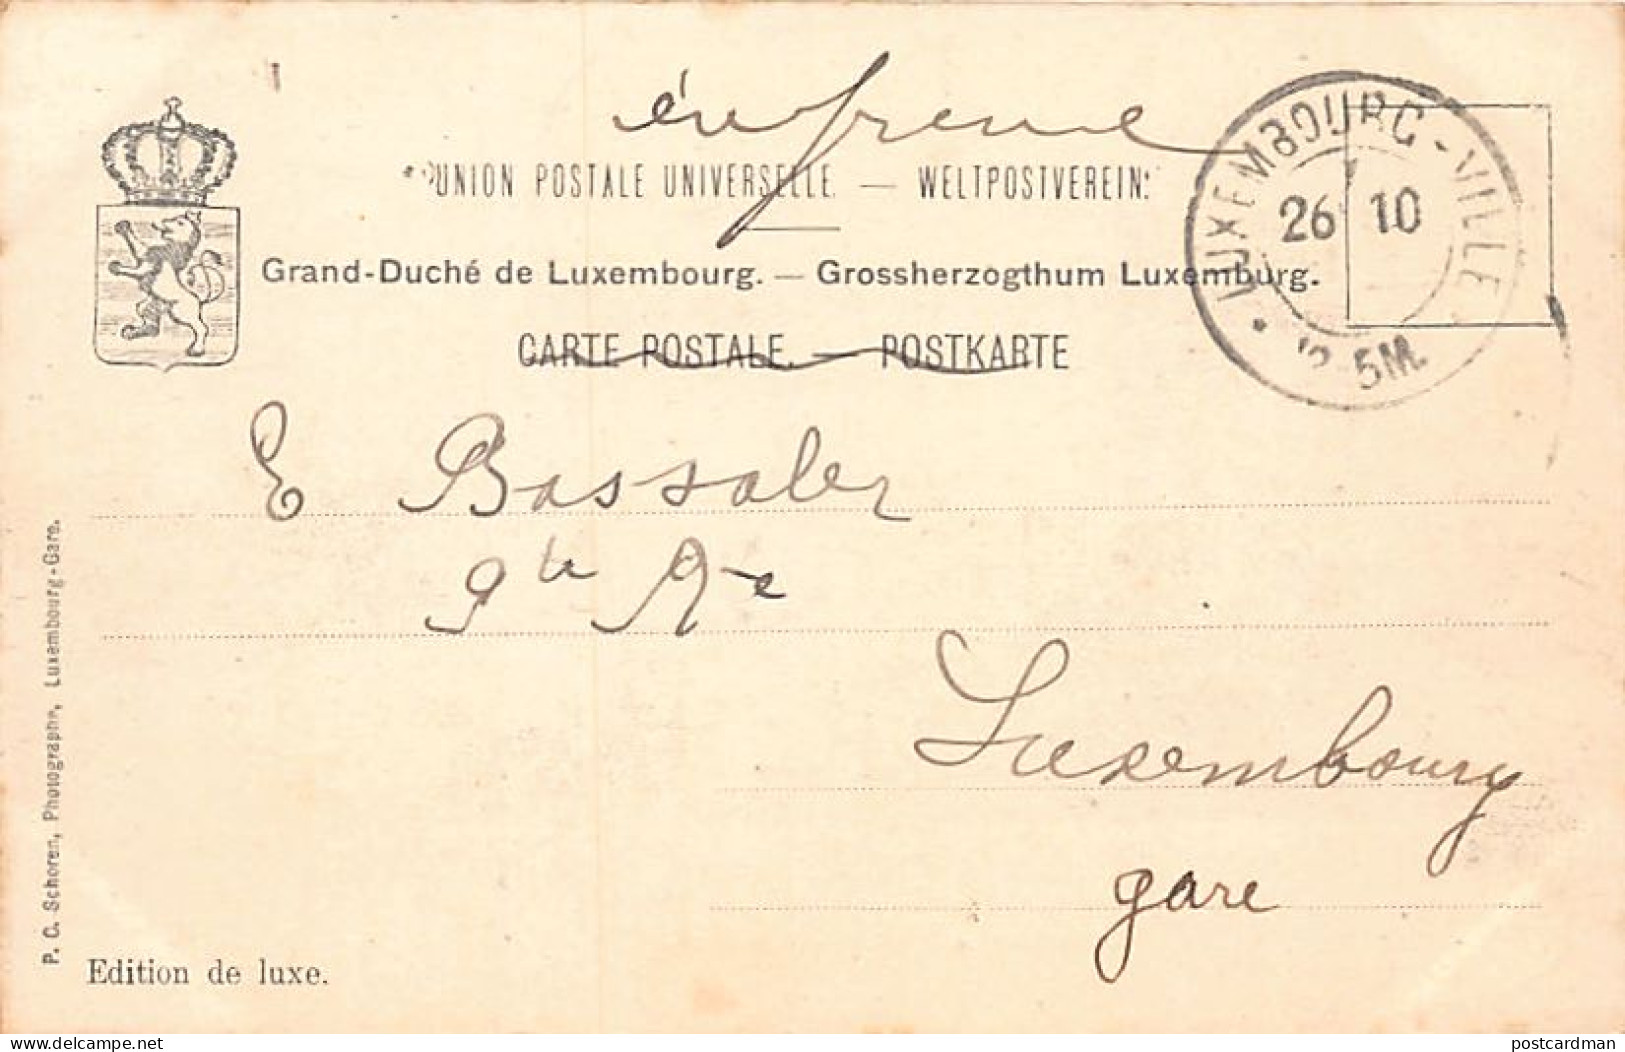 UNION POSTALE UNIVERSELLE. — WELTPOSTVEREIN.
Grand-Duché de Luxembourg. — Grossherzogthum Luxemburg.
CARTE POSTALE. — POSTKARTE
LUXEMBOURG - VILLE
26 10
5M.
E Bassaler
Luxembourg
gare
P. C. Schoren, Photographe, Luxembourg-Gare.
Edition de luxe.
delcampe.net
postcardman